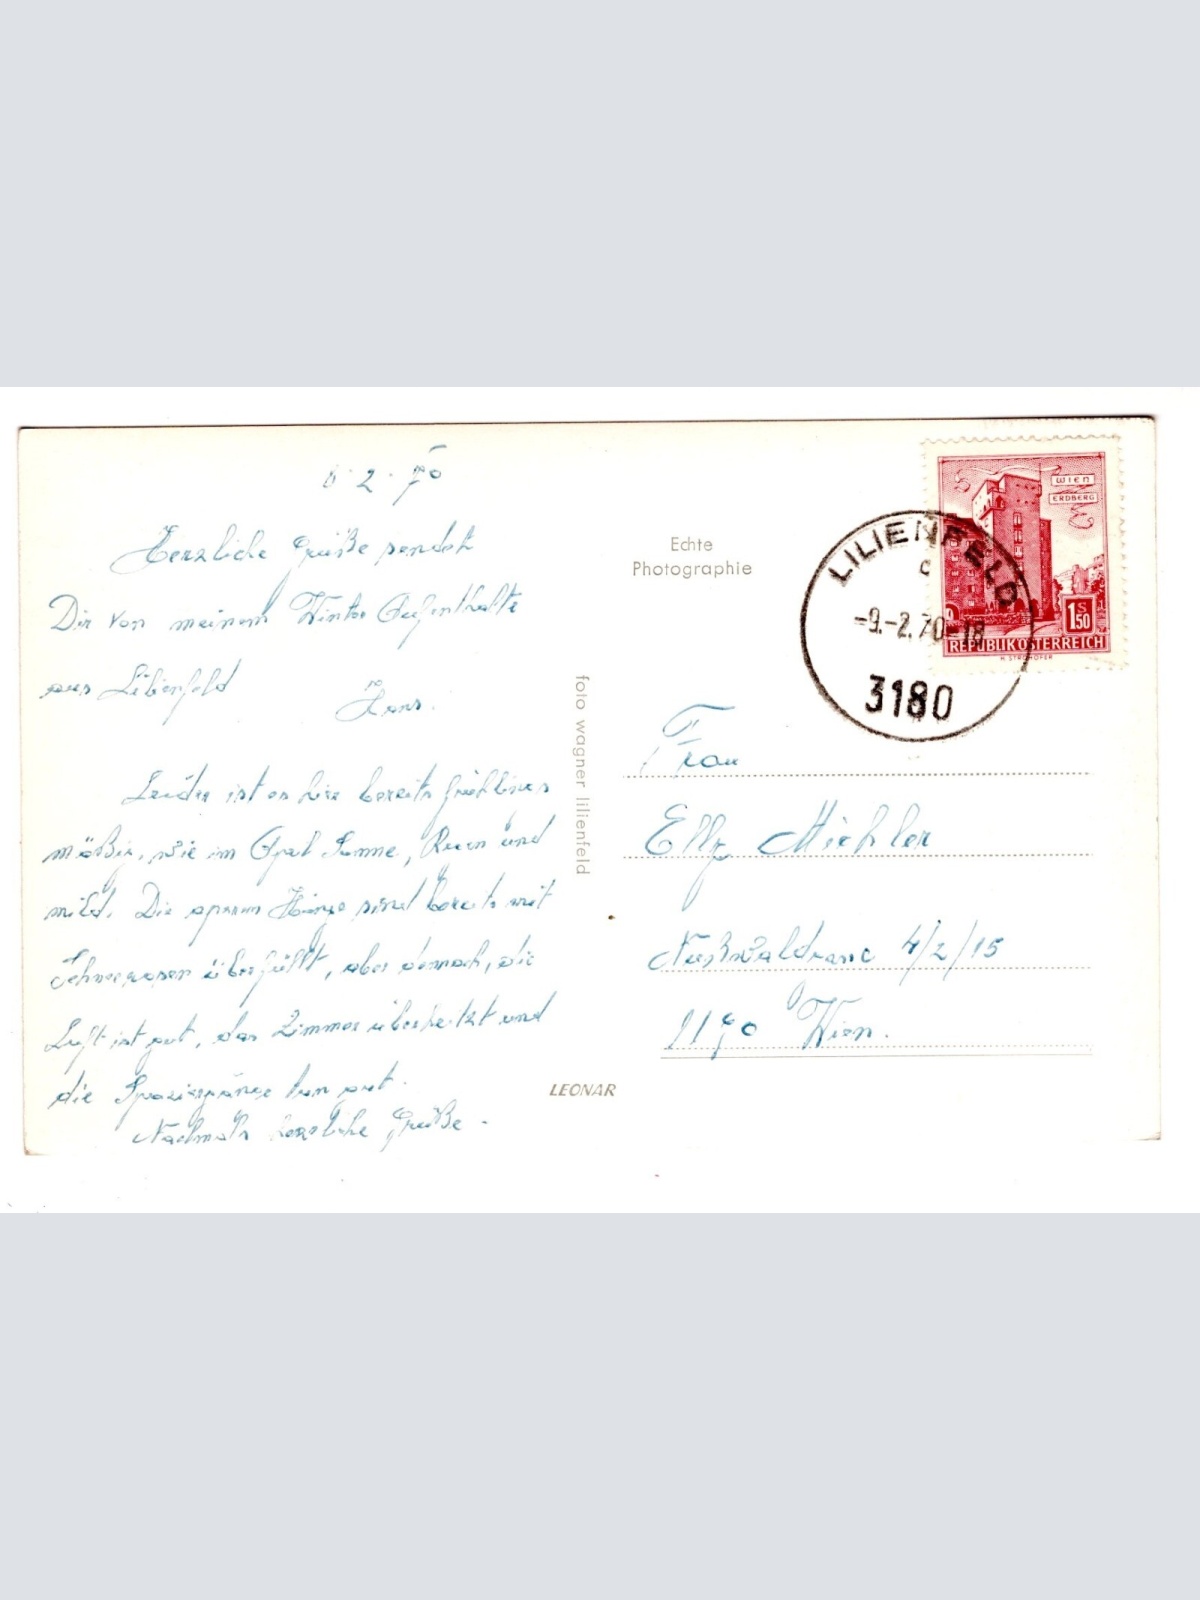 8.2.70
Herzliche Grüße sendet
Dir von meinem Winter Aufenthalte
aus Lilienfeld
Hans.
Leider ist es hier bereits frühlings
mäßig, wie im April Sonne, Regen und
mild. Die Hänge sind bereits mit
Schneerosen überfüllt, aber dennoch, die
Luft ist gut, das Zimmer überheitzt und
die Spaziergänge tun gut.
Nochmals herzliche Grüße.
foto wagner lilienfeld
LEONAR
Echte
Photographie
WIEN
ERDBERG
S
1,50
REPUBLIK ÖSTERREICH
H. STROHOFER
LILIENFELD
c
-9.-2.70-18
3180
Frau
Elly Michler
4/2/15
1190 Wien.